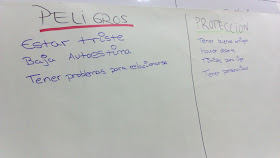 PELIGROS
Estar triste
Baja Autoestima
Tener problemas para relacionarse
PROTECCION
Tener buenos
hacer
Tener personalidad